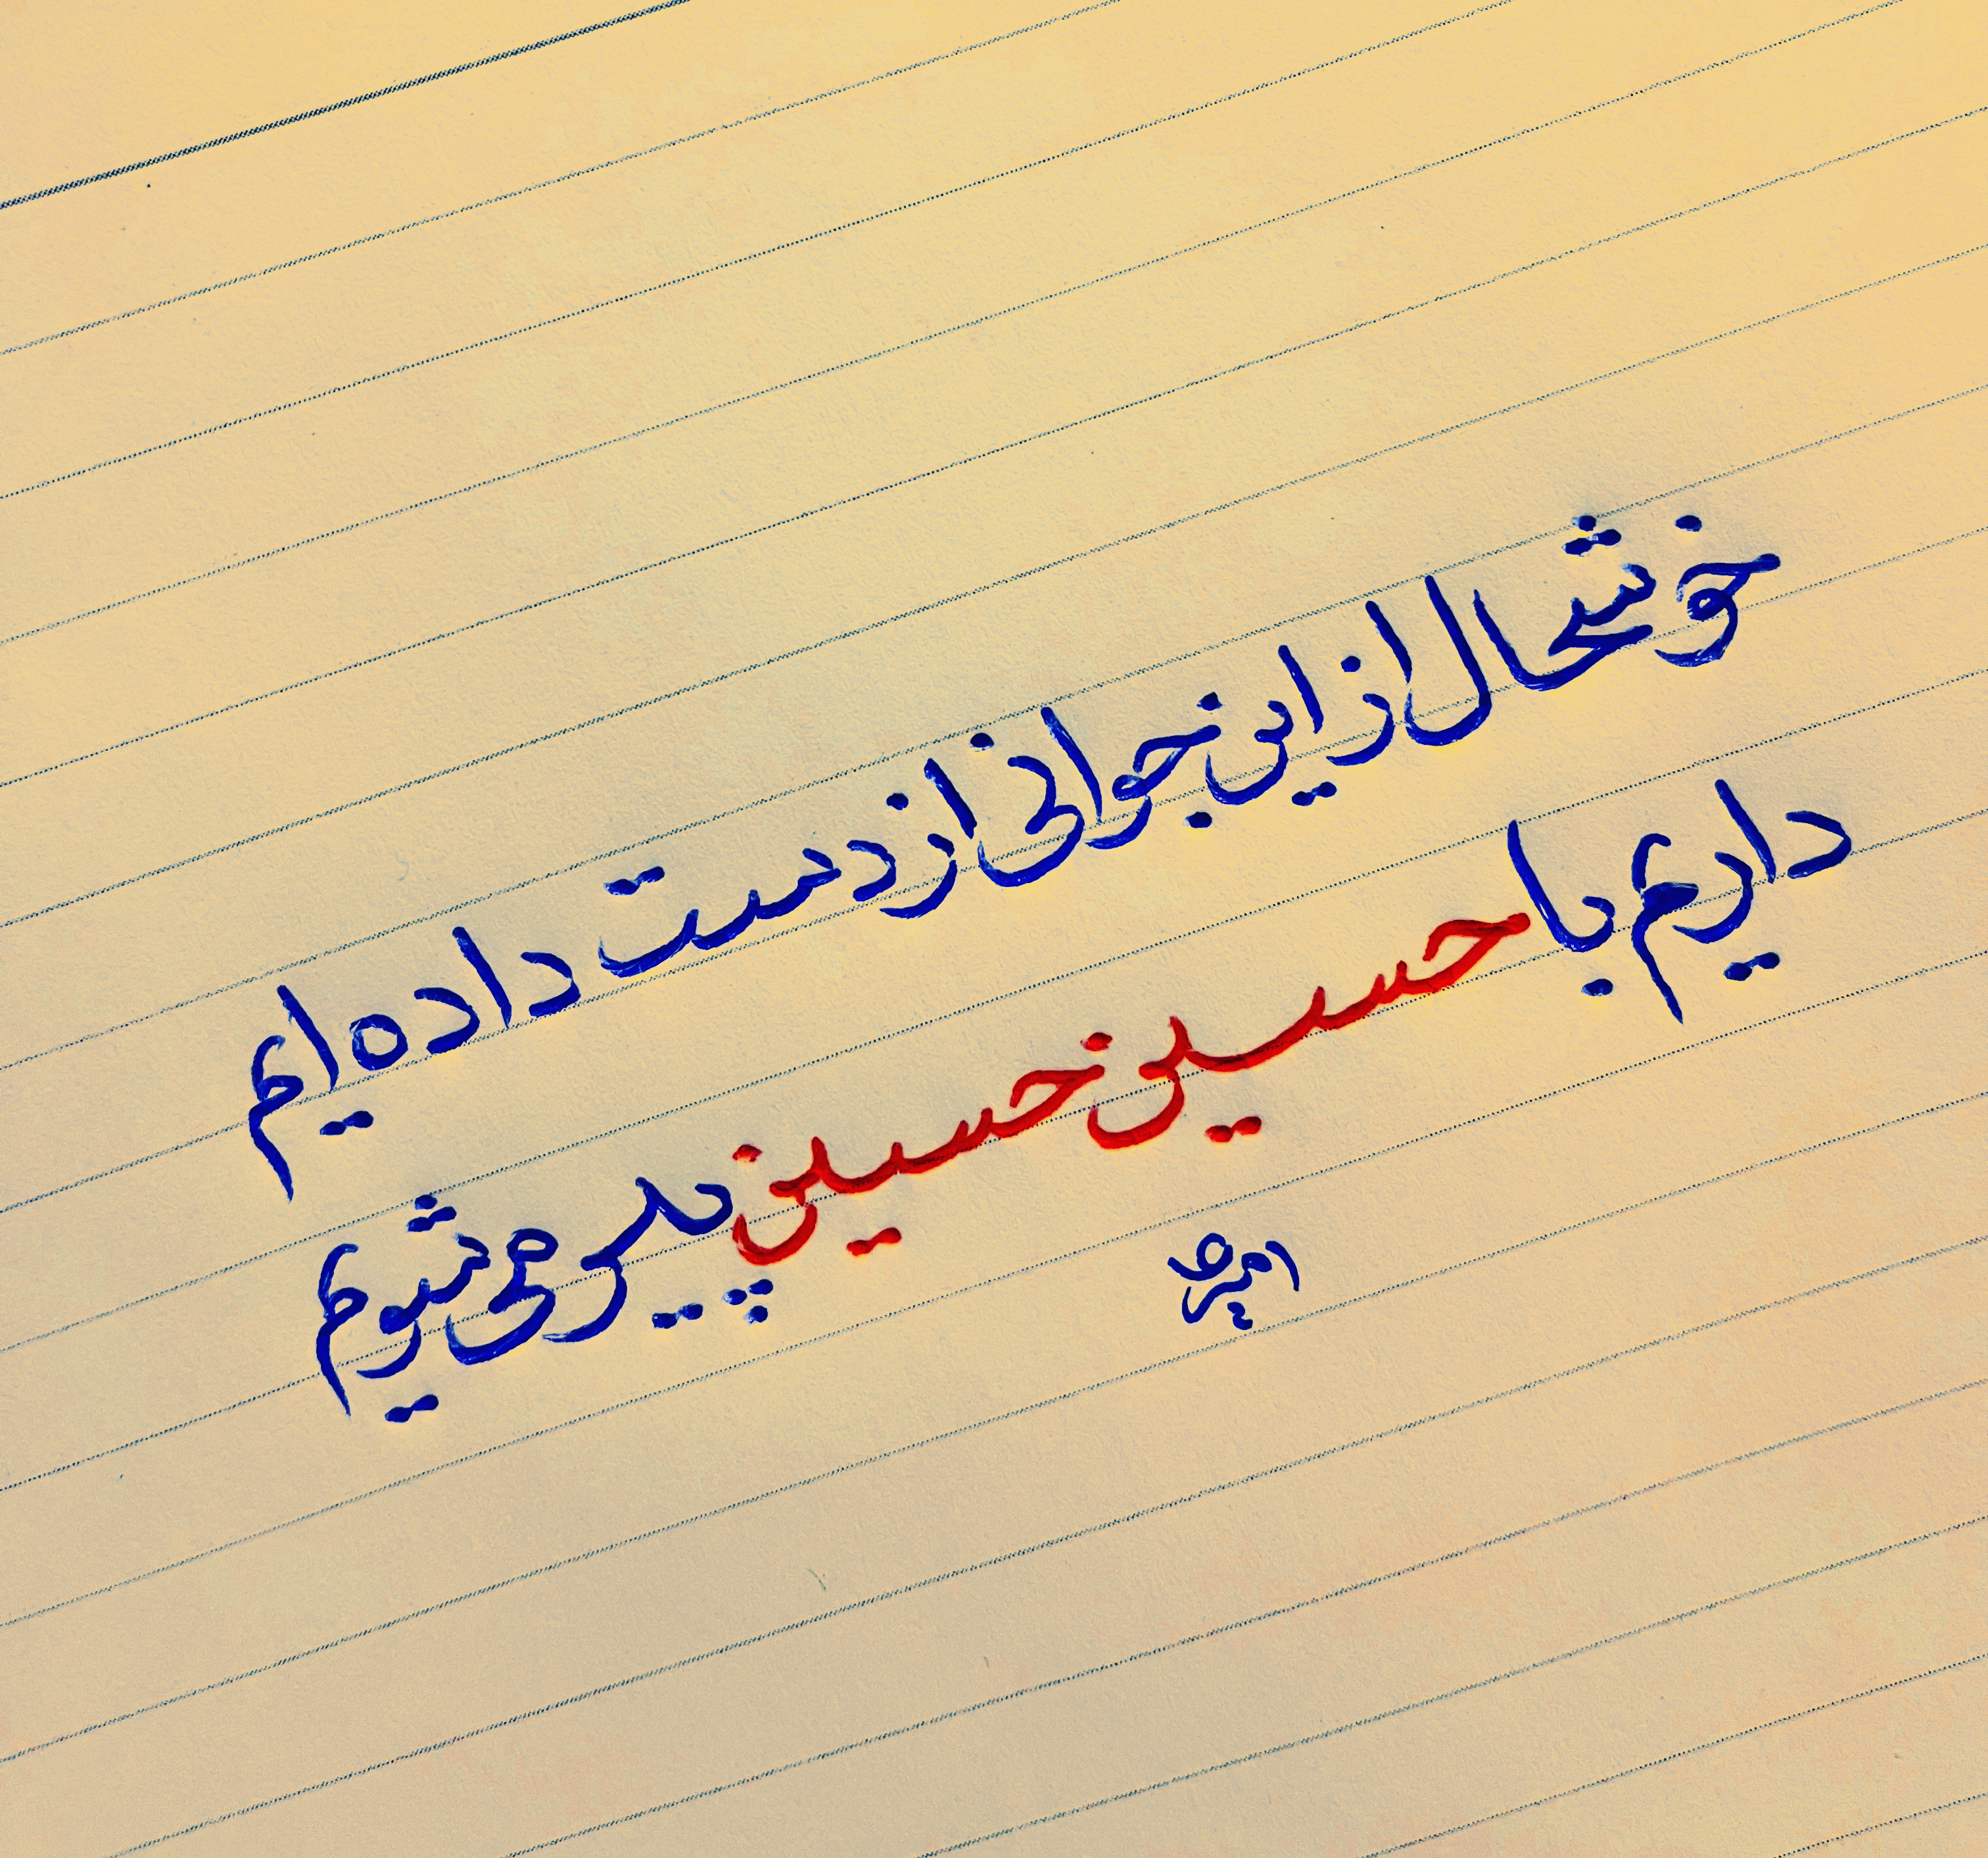 خوشحال از این جوانی از دست داده ایم
داریم با حسین حسین پیر می شویم